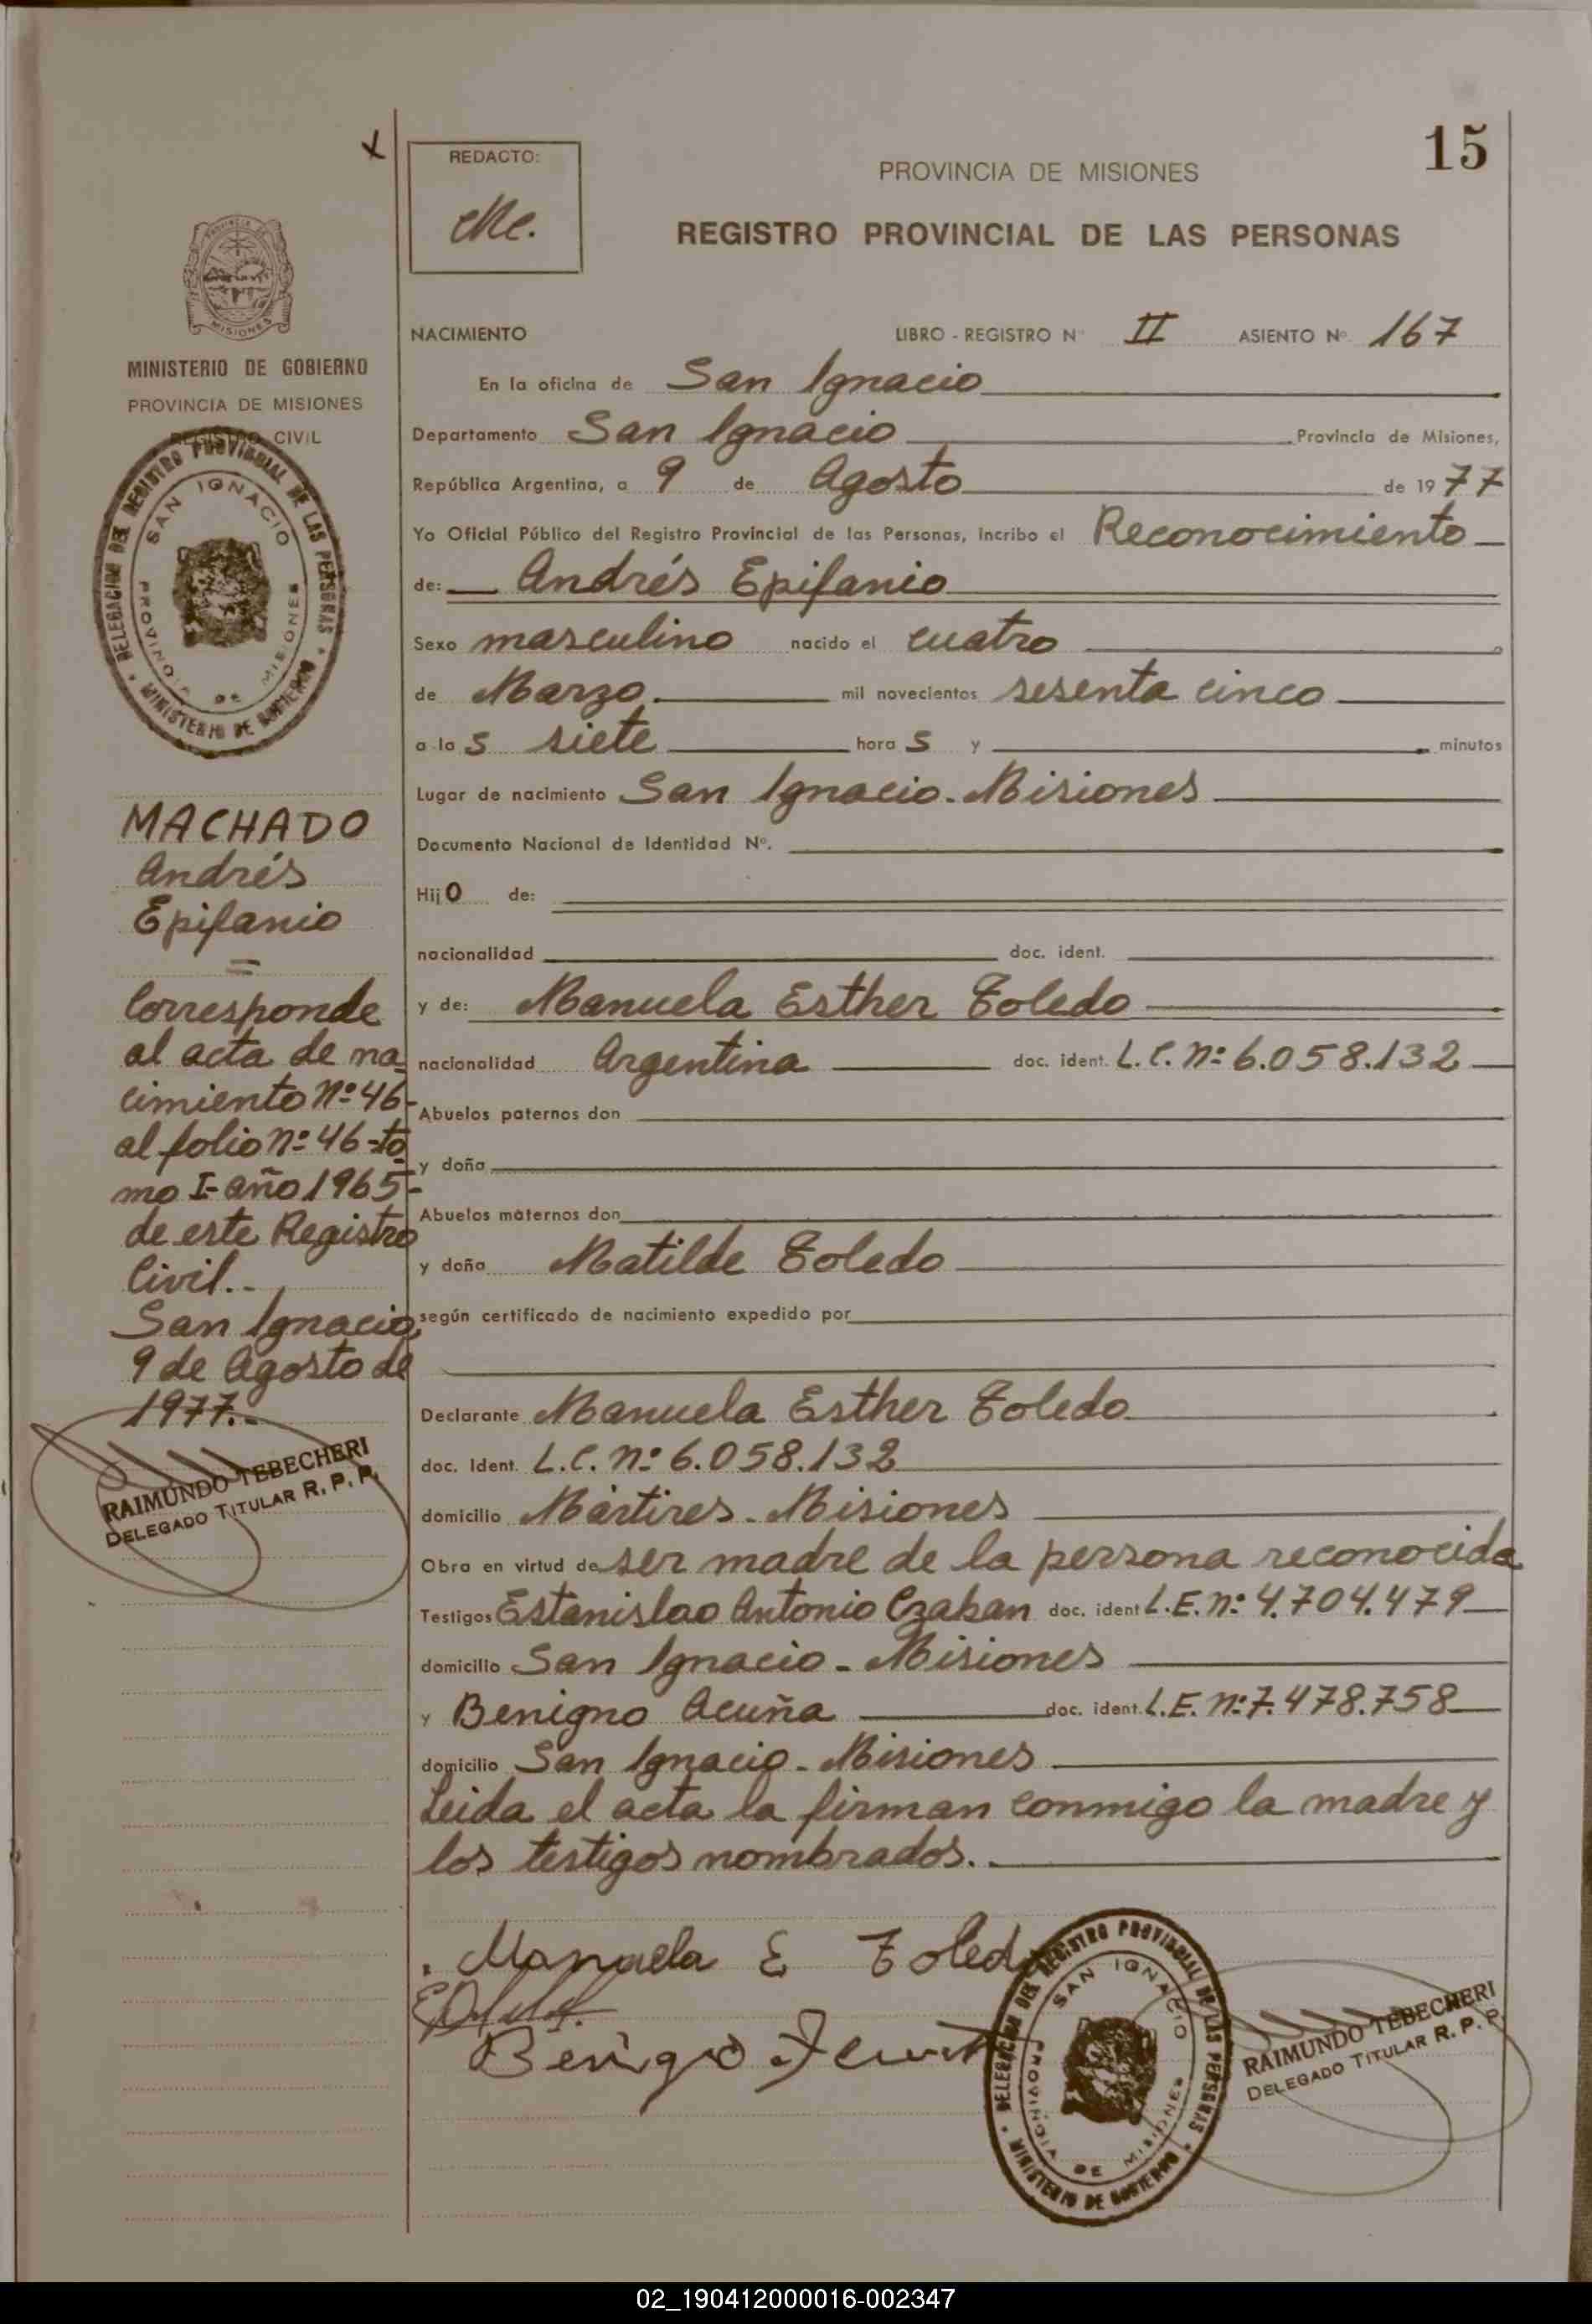 15
REDACTO:
PROVINCIA DE MISIONES
REGISTRO PROVINCIAL DE LAS PERSONAS
NACIMIENTO LIBRO - REGISTRO Nº II ASIENTO Nº 167
En la oficina de San Ignacio
Departamento San Ignacio Provincia de Misiones,
República Argentina, a 9 de Agosto de 1977
Yo Oficial Público del Registro Provincial de las Personas, incribo el Reconocimiento
de: Andrés Epifanio
Sexo masculino nacido el cuatro
de Marzo mil novecientos sesenta cinco
a las siete horas y minutos
Lugar de nacimiento San Ignacio - Misiones
Documento Nacional de Identidad Nº.
Hijo de:
nacionalidad doc. ident.
y de: Manuela Esther Toledo
nacionalidad Argentina doc. ident. L.C. Nº 6.058.132
Abuelos paternos don
y doña
Abuelos maternos don
y doña Matilde Toledo
según certificado de nacimiento expedido por
Declarante Manuela Esther Toledo
doc. Ident. L.C. Nº 6.058.132
domicilio Mártires - Misiones
Obra en virtud de ser madre de la persona reconocida
Testigos Estanislao Antonio Czaban doc. ident L.E. Nº 4.704.479
domicilio San Ignacio - Misiones
y Benigno Acuña doc. ident. L.E. Nº 7.478.758
domicilio San Ignacio - Misiones
Leida el acta la firman conmigo la madre y
los testigos nombrados.-
Manuela E Toledo
Benigno Acuña
DELEGACION DEL REGISTRO PROVINCIAL DE LAS PERSONAS
SAN IGNACIO
PROVINCIA DE MISIONES
MINISTERIO DE GOBIERNO
RAIMUNDO TEBECHERI
DELEGADO TITULAR R. P. P.
PROVINCIA DE
MISIONES
MINISTERIO DE GOBIERNO
PROVINCIA DE MISIONES
REGISTRO CIVIL
DELEGACION DEL REGISTRO PROVINCIAL DE LAS PERSONAS
SAN IGNACIO
PROVINCIA DE MISIONES
MINISTERIO DE GOBIERNO
MACHADO
Andrés
Epifanio
=
Corresponde
al acta de na
cimiento Nº 46-
al folio Nº 46-to
mo I-año 1965-
de este Registro
Civil.-
San Ignacio,
9 de Agosto de
1977.-
RAIMUNDO TEBECHERI
DELEGADO TITULAR R. P. P.
02_190412000016-002347